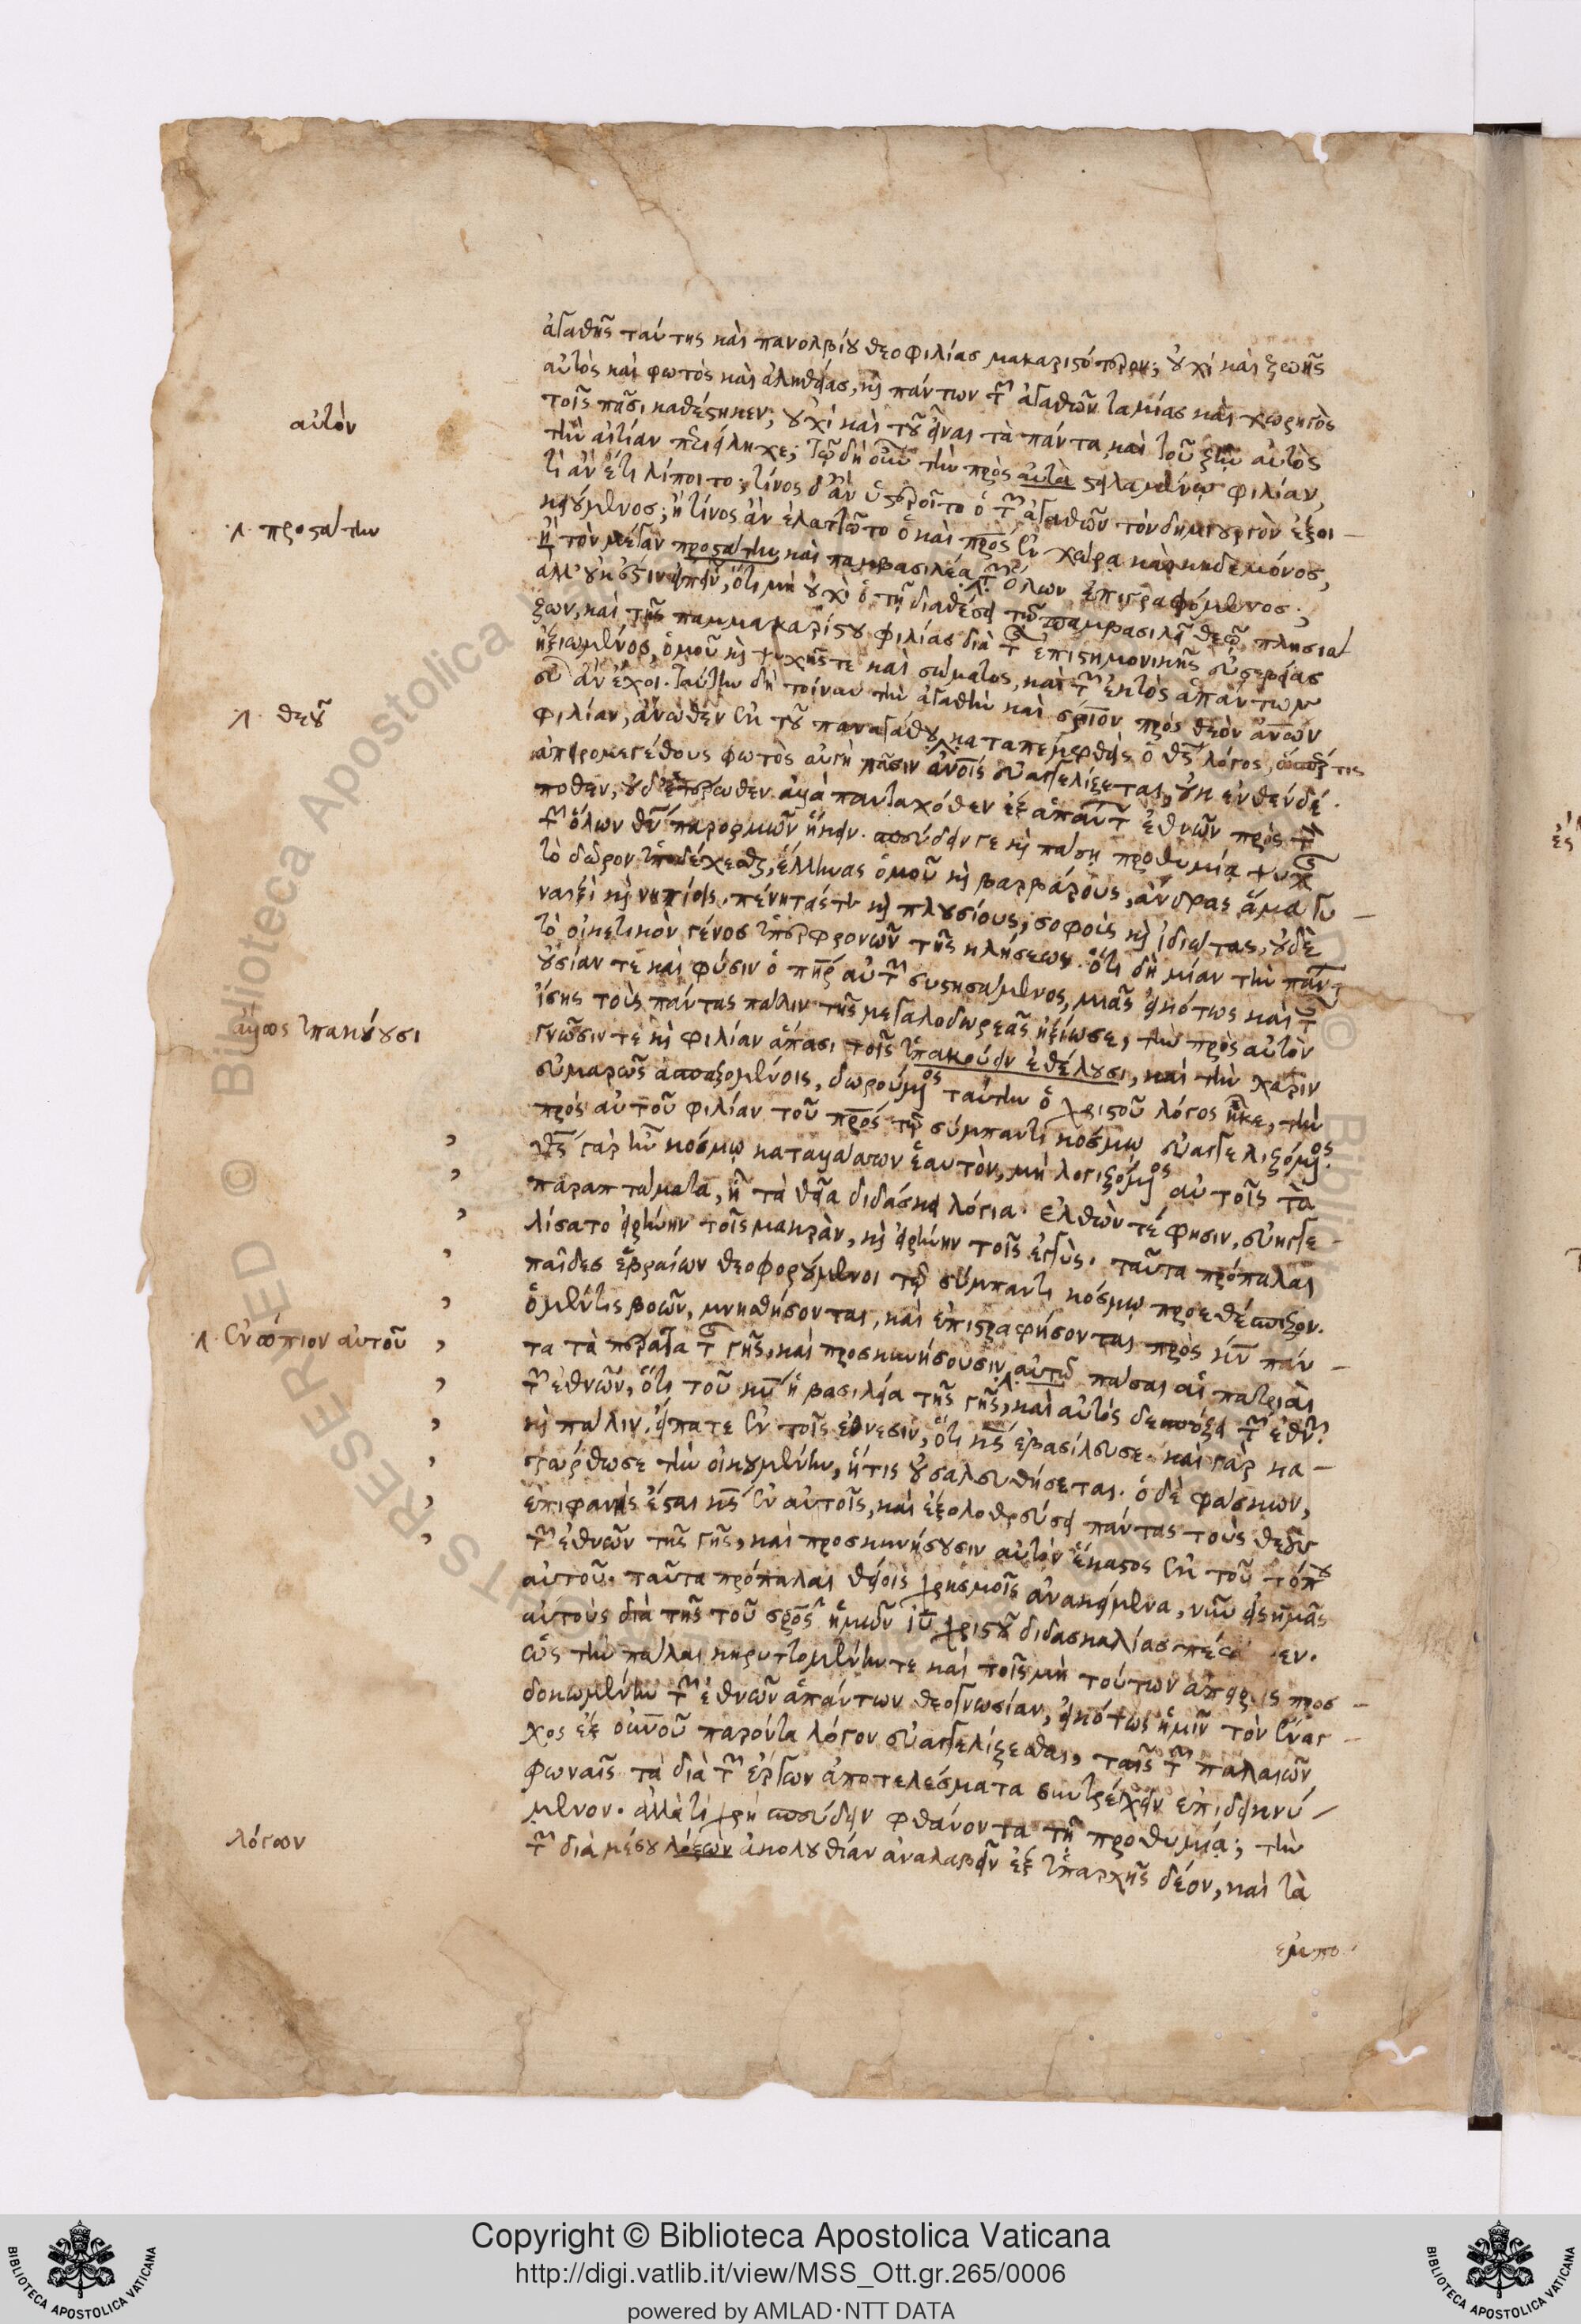 ἀγαθῆς ταύτης καὶ πανολβίου θεοφιλίας μακαριστότερον; οὐχὶ καὶ ζωῆς
αὐτὸς καὶ φωτὸς καὶ ἀληθείας, κỳ πάντων τῶν ἀγαθῶν ταμίας καὶ χορηγὸς
αὐτὸν
τοῖς πᾶσι καθέστηκεν; οὐχὶ καὶ τοῦ εἶναι τὰ πάντα καὶ τοῦ ζῆν αὐτὸς
τὴν αἰτίαν περιείληχε; τῷ δὴ οὖν τὴν πρὸς αὐτὰ στειλαμένῳ φιλίαν,
τί ἂν ἔτι λίποιτο; τίνος δ' ἂν ὑστεροῖτο ὁ τῶν ἀγαθῶν τὸν δημιουργὸν ἐξοι-
κειούμενος; ἢ τίνος ἂν ἐλαττῶτο ὁ καὶ πρς ἐν χώρᾳ καὶ κηδεμόνος,
λ. προστάτην
ἢ τὸν μέγαν προστάτην καὶ παμβασιλέα τῶν ὅλων ἐπιγραφόμενος;
ἀλλ' οὐκ ἔστιν εἰπεῖν, ὅτι μὴ οὐχὶ ὁ τῇ διαθέσει τῷ παμβασιλεῖ θεῷ πλησιά
ζων, καὶ τῆς παμμακαρίστου φιλίας διὰ τῆς ἐπιστημονικῆς εὐσεβείας
ἠξιωμένος, ὁμοῦ κỳ ψυχῆς τε καὶ σώματος, καὶ τῶν ἐκτὸς ἁπάντων
εὖ ἂν ἔχοι. ταύτην δὴ τοίνυν τὴν ἀγαθὴν καὶ σριον πρὸς θεὸν ἀνων
λ. θεοῦ
φιλίαν, ἄνωθεν ἐκ τοῦ παναγάθου καταπεμφθεὶς ὁ θῦ λόγος, ὥσπερ τις
ἀπειρομεγέθους φωτὸς αὐγὴ πᾶσιν ἀνοις εὐαγγελίζεται, οὐκ ἐνθένδε
ποθεν, οὐδ' ἑτέρωθεν ἀλλὰ πανταχόθεν ἐξ ἁπάντων ἐθνῶν πρὸς τὸν
τῶν ὅλων θν παρορμῶν ἥκειν. σπεύδειν γε κỳ πάσῃ προθυμίᾳ ψυχῆς
τὸ δῶρον ὑποδέχεσθαι, ἕλληνας ὁμοῦ κỳ βαρβάρους, ἄνδρας ἅμα γυ-
ναιξὶ κỳ νηπίοις, πένητάς τε κỳ πλουσίους, σοφοὺς κỳ ἰδιώτας, οὐδὲ
τὸ οἰκετικὸν γένος ὑπερφρονῶν τῆς κλήσεως. ὅτι δὴ μίαν τὴν πάντων
οὐσίαν τε καὶ φύσιν ὁ πηρ αὐτῶν συστησάμενος, μιᾶς εἰκότως καὶ τῆς
ἴσης τοὺς πάντας πάλιν τῆς μεγαλοδωρεᾶς ἠξίωσε, τὴν πρὸς αὐτὸν
ἄλλως ὑπακούουσι
γνῶσιν τε κỳ φιλίαν ἅπασι τοῖς ὑπακούειν ἐθέλουσι, καὶ τὴν χάριν
εὐμαρῶς ἀσπαζομένοις, δωρούμενος ταύτην ὁ χριστοῦ λόγος ἧκε, τὴν
πρὸς αὐτοῦ φιλίαν τοῦ πρς τῷ σύμπαντι κόσμῳ εὐαγγελιζόμενος.
θς γὰρ ἦν κόσμῳ καταλλάττων ἑαυτὸν, μὴ λογιζόμενος αὐτοῖς τὰ
παραπτώματα, ᾗ τὰ θεῖα διδάσκει λόγια. ἐλθών τέ φησιν, εὐηγγε-
λίσατο εἰρήνην τοῖς μακρὰν, κỳ εἰρήνην τοῖς ἐγγύς. ταῦτα πρόπαλαι
παῖδες ἑβραίων θεοφορούμενοι τῷ σύμπαντι κόσμῳ προεθέσπιζον.
ὁ μέν τις βοῶν, μνησθήσονται, καὶ ἐπιστραφήσονται πρὸς κν πάν-
λ. ἐνώπιον αὐτοῦ
τα τὰ πέρατα τῆς γῆς, καὶ προσκυνήσουσιν αὐτῷ πᾶσαι αἱ πατριαὶ
τῶν ἐθνῶν, ὅτι τοῦ κυ ἡ βασιλεία τῆς γῆς, καὶ αὐτὸς δεσπόζει τῶν ἐθνῶν.
κỳ πάλιν. εἴπατε ἐν τοῖς ἔθνεσιν, ὅτι κς ἐβασίλευσε. καὶ γὰρ κα-
τώρθωσε τὴν οἰκουμένην, ἥτις οὐ σαλευθήσεται. ὁ δὲ φάσκων,
ἐπιφανὴς ἔσται κς ἐν αὐτοῖς, καὶ ἐξολοθρεύσει πάντας τοὺς θεοὺς
τῶν ἐθνῶν τῆς γῆς, καὶ προσκυνήσουσιν αὐτὸν ἕκαστος ἐκ τοῦ τόπου
αὐτοῦ. ταῦτα πρόπαλαι θείοις χρησμοῖς ἀνακείμενα, νῦν εἰς ἡμᾶς
αὐτοὺς διὰ τῆς τοῦ σρς ἡμῶν ιυ χριστοῦ διδασκαλίας
ὡς τὴν πάλαι κηρυττομένην τε καὶ τοῖς μὴ τούτων ἀπείροις προσ-
δοκωμένην τῶν ἐθνῶν ἁπάντων θεογνωσίαν, εἰκότως ἡμῖν τὸν ἔναγ-
χος ἐξ οὐνοῦ παρόντα λόγον εὐαγγελίζεσθαι, ταῖς τῶν παλαιῶν
φωναῖς τὰ διὰ τῶν ἔργων ἀποτελέσματα συντρέχειν ἐπιδεικνύ-
μενον. ἀλλὰ τί χρὴ σπεύδειν φθάνοντα τῇ προθυμίᾳ; τὴν
λόγων
τῶν διὰ μέσου λέξεων ἀκολουθίαν ἀναλαβεῖν ἐξ ὑπαρχῆς δέον, καὶ τὰ
ἐμπο
Copyright © Biblioteca Apostolica Vaticana
http://digi.vatlib.it/view/MSS_Ott.gr.265/0006
powered by AMLAD·NTT DATA